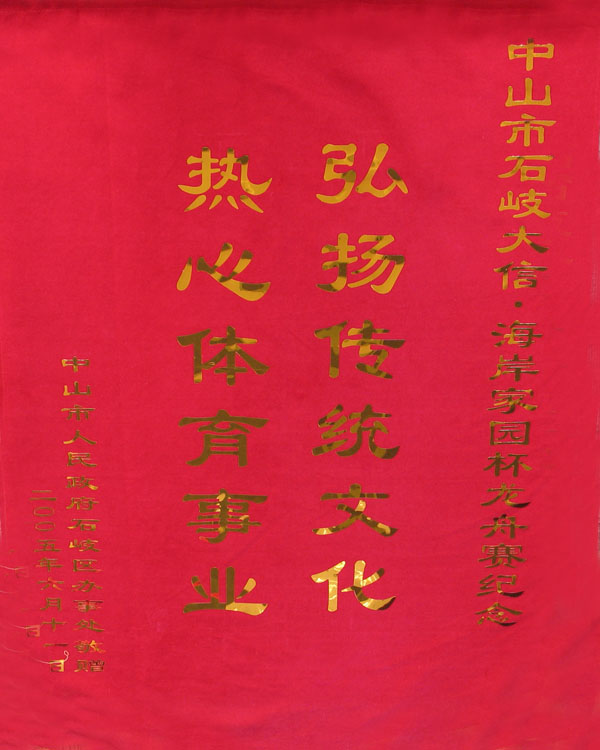 中山市石岐大信·海岸家园杯龙舟赛纪念
弘扬传统文化
热心体育事业
中山市人民政府石岐区办事处敬赠
二〇〇五年六月十一日